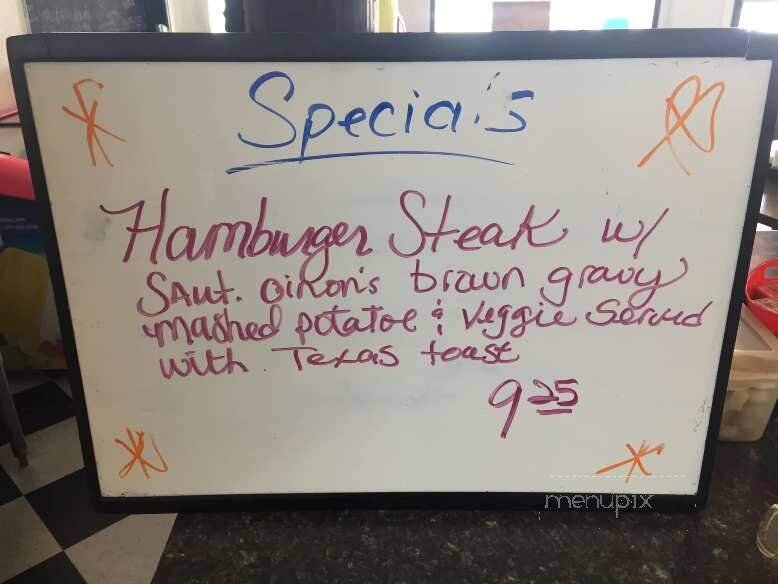 Specials
Hamburger Steak w/
SAut. Oinon's brown gravy
mashed potatoe & Veggie Served
with Texas toast
9 25
menupix